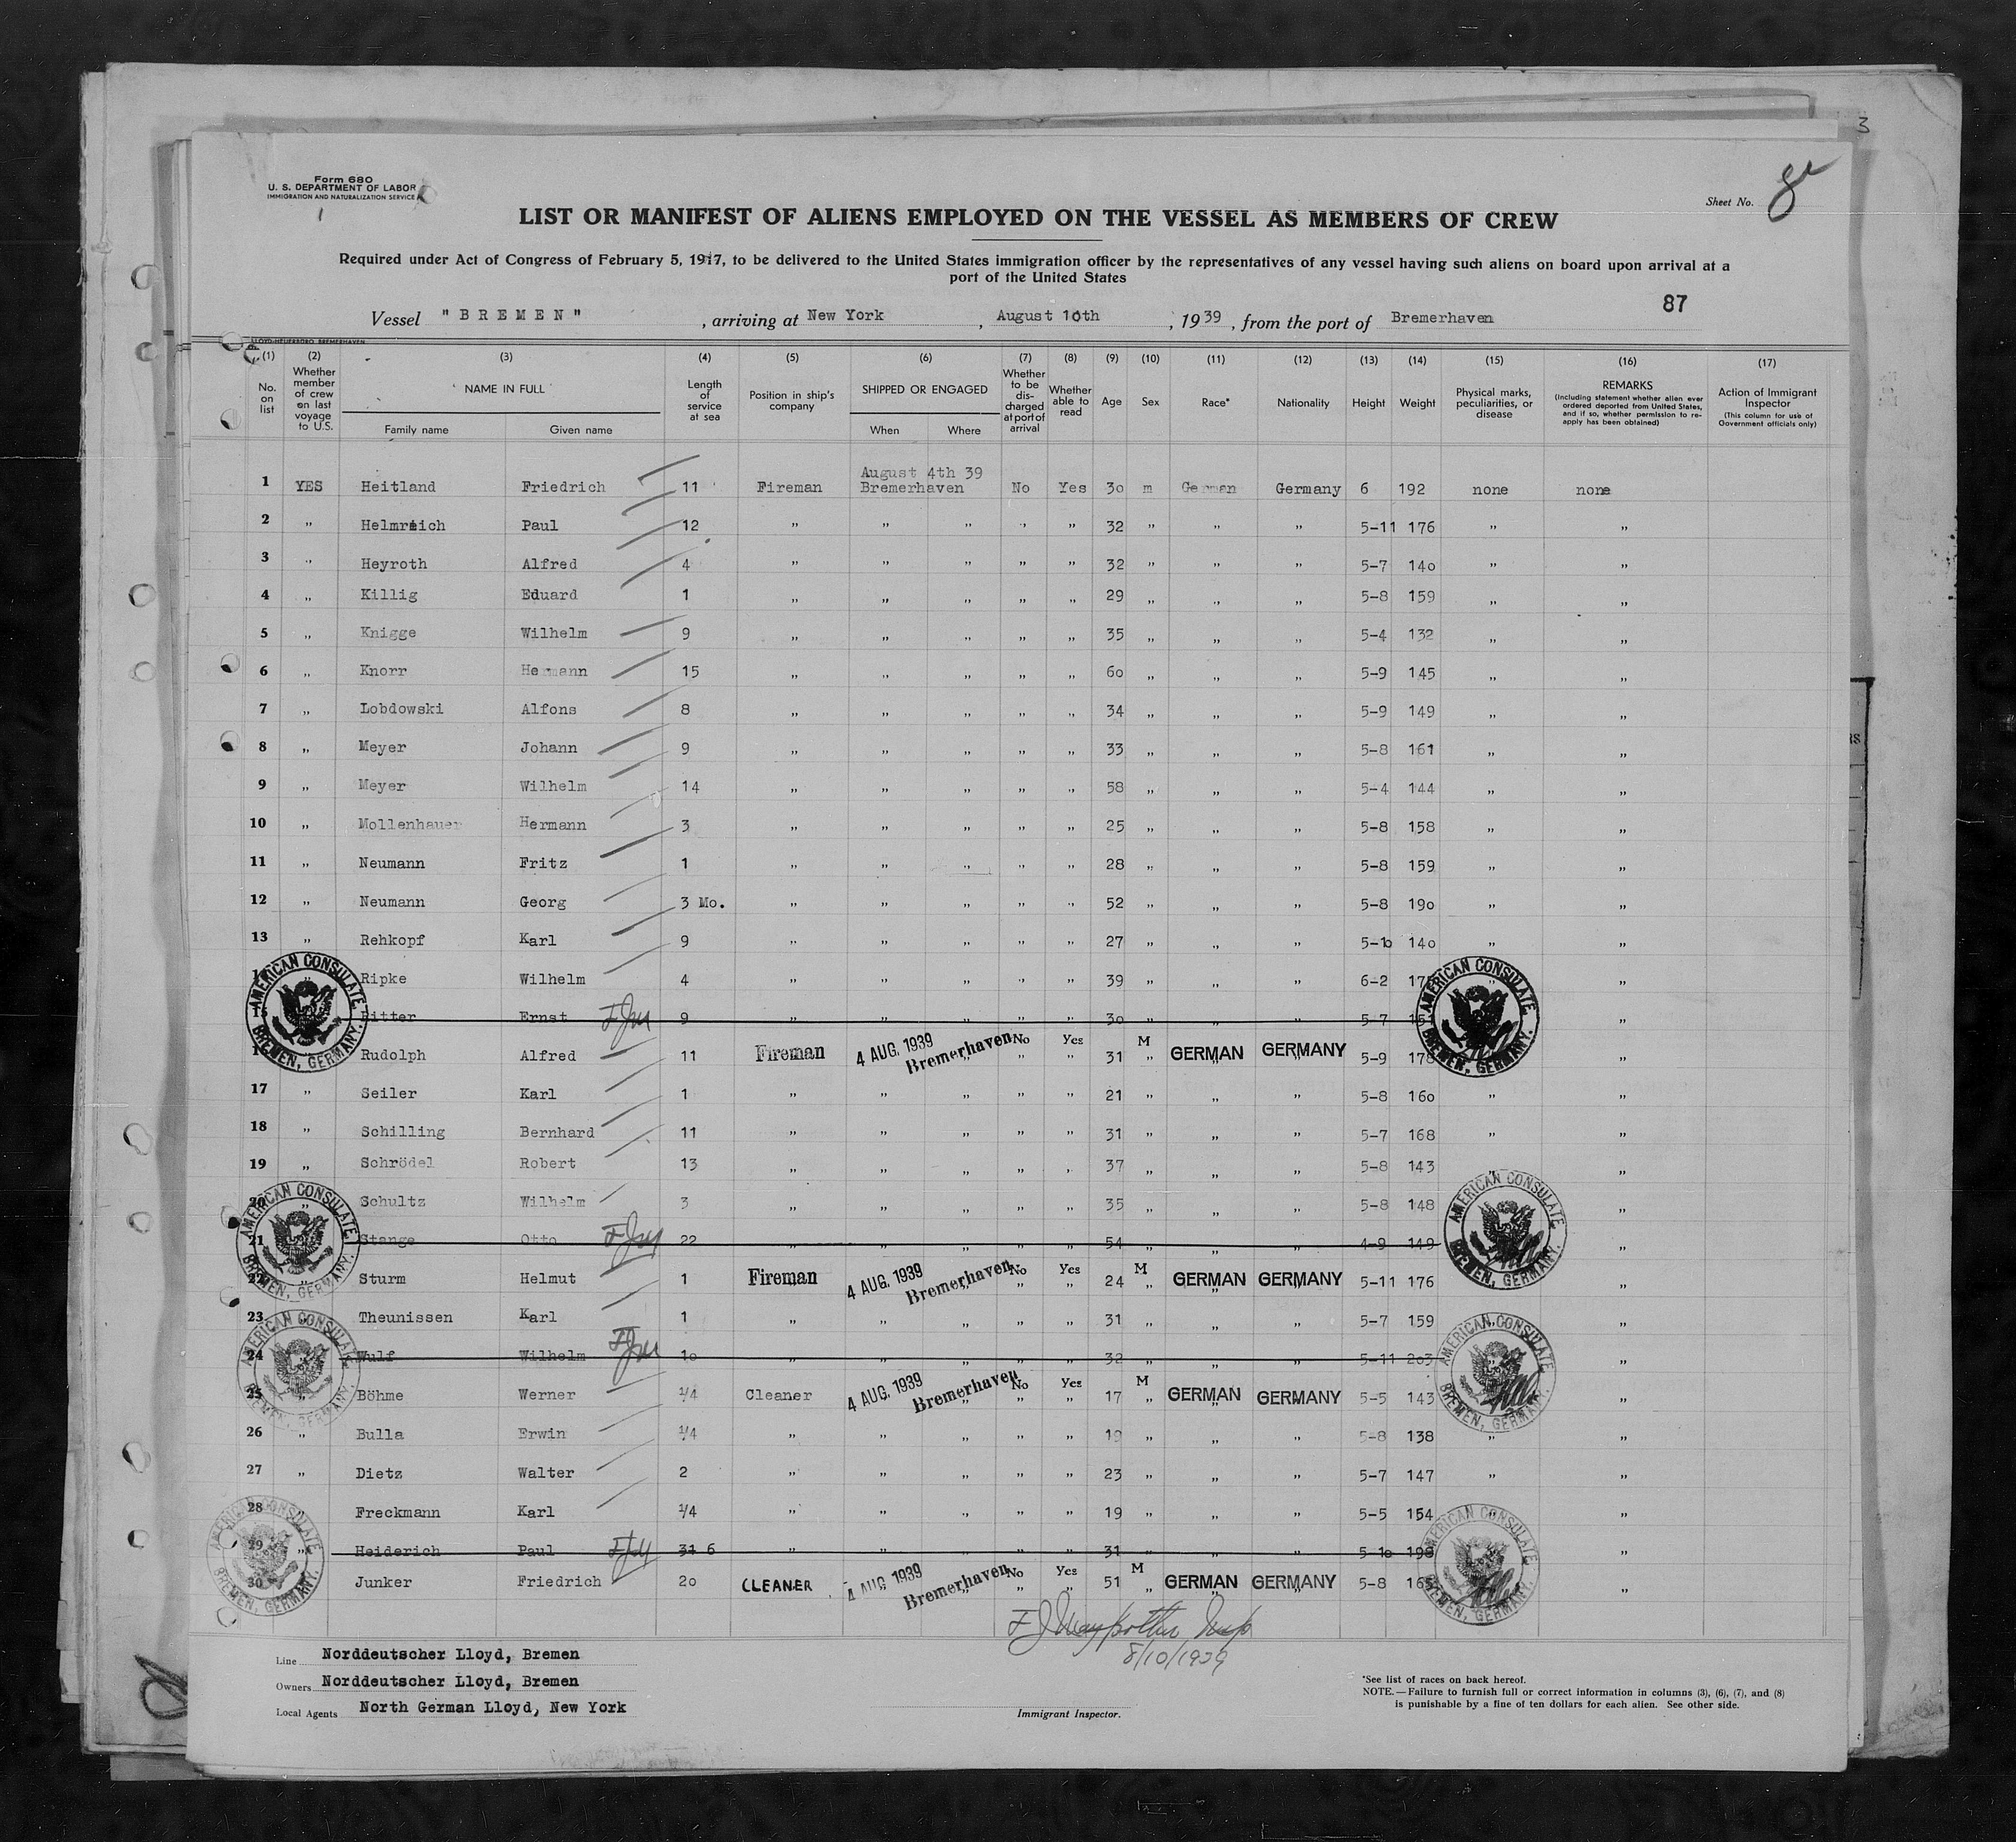 Form 680
U. S. DEPARTMENT OF LABOR
IMMIGRATION AND NATURALIZATION SERVICE
Sheet No.
LIST OR MANIFEST OF ALIENS EMPLOYED ON THE VESSEL AS MEMBERS OF CREW
Required under Act of Congress of February 5, 1917, to be delivered to the United States immigration officer by the representatives of any vessel having such aliens on board upon arrival at a
port of the United States
87
Vessel "BREMEN" , arriving at New York , August 10th , 1939 , from the port of Bremerhaven
(1) (2) (3) (4) (5) (6) (7) (8) (9) (10) (11) (12) (13) (14) (15) (16) (17)
No. on list
Whether member of crew on last voyage to U.S.
NAME IN FULL
Family name Given name
Length of service at sea
Position in ship's company
SHIPPED OR ENGAGED
When Where
Whether to be discharged at port of arrival
Whether able to read
Age Sex Race* Nationality Height Weight
Physical marks, peculiarities, or disease
REMARKS
(Including statement whether alien ever ordered deported from United States, and if so, whether permission to re-apply has been obtained)
Action of Immigrant Inspector
(This column for use of Government officials only)
August 4th 39
1 YES Heitland Friedrich 11 Fireman Bremerhaven No Yes 30 m German Germany 6 192 none none
2 " Helmreich Paul 12 " " " " " 32 " " " 5-11 176 " "
3 " Heyroth Alfred 4 " " " " " 32 " " " 5-7 140 " "
4 " Killig Eduard 1 " " " " " 29 " " " 5-8 159 " "
5 " Knigge Wilhelm 9 " " " " " 35 " " " 5-4 132 " "
6 " Knorr Hermann 15 " " " " " 60 " " " 5-9 145 " "
7 " Lobdowski Alfons 8 " " " " " 34 " " " 5-9 149 " "
8 " Meyer Johann 9 " " " " " 33 " " " 5-8 161 " "
9 " Meyer Wilhelm 14 " " " " " 58 " " " 5-4 144 " "
10 " Mollenhauer Hermann 3 " " " " " 25 " " " 5-8 158 " "
11 " Neumann Fritz 1 " " " " " 28 " " " 5-8 159 " "
12 " Neumann Georg 3 Mo. " " " " " 52 " " " 5-8 190 " "
13 " Rehkopf Karl 9 " " " " " 27 " " " 5-10 140 " "
Ripke Wilhelm 4 " " " " " 39 " " " 6-2 " "
15 Ritter Ernst 9 " " " " " 30 " " " 5-7 "
Rudolph Alfred 11 Fireman 4 AUG. 1939 Bremerhaven No Yes 31 M GERMAN GERMANY 5-9 178 "
17 " Seiler Karl 1 " " " " " 21 " " " 5-8 160 " "
18 " Schilling Bernhard 11 " " " " " 31 " " " 5-7 168 " "
19 " Schrödel Robert 13 " " " " " 37 " " " 5-8 143 " "
20 " Schultz Wilhelm 3 " " " " " 35 " " " 5-8 148 "
21 Stange Otto 22 " " " " " 54 " " " 4-9 149 "
22 Sturm Helmut 1 Fireman 4 AUG. 1939 Bremerhaven No Yes 24 M GERMAN GERMANY 5-11 176 "
23 " Theunissen Karl 1 " " " " " 31 " " " 5-7 159 " "
24 Wulf Wilhelm 10 " " " " " 32 " " " 5-11 203 "
25 " Böhme Werner 1/4 Cleaner 4 AUG. 1939 Bremerhaven No Yes 17 M GERMAN GERMANY 5-5 143 "
26 " Bulla Erwin 1/4 " " " " " 19 " " " 5-8 138 " "
27 " Dietz Walter 2 " " " " " 23 " " " 5-7 147 " "
28 " Freckmann Karl 1/4 " " " " " 19 " " " 5-5 154 " "
29 " Heiderich Paul 31 6 " " " " " 31 " " " 5-10 190 "
30 Junker Friedrich 20 CLEANER 4 AUG 1939 Bremerhaven No Yes 51 M GERMAN GERMANY 5-8 "
AMERICAN CONSULATE BREMEN, GERMANY.
AMERICAN CONSULATE BREMEN, GERMANY.
AMERICAN CONSULATE BREMEN, GERMANY.
AMERICAN CONSULATE BREMEN, GERMANY.
AMERICAN CONSULATE BREMEN, GERMANY.
AMERICAN CONSULATE BREMEN, GERMANY.
AMERICAN CONSULATE BREMEN, GERMANY.
AMERICAN CONSULATE BREMEN, GERMANY.
8/10/1939
Line Norddeutscher Lloyd, Bremen
Owners Norddeutscher Lloyd, Bremen
Local Agents North German Lloyd, New York
Immigrant Inspector.
*See list of races on back hereof.
NOTE.—Failure to furnish full or correct information in columns (3), (6), (7), and (8)
is punishable by a fine of ten dollars for each alien. See other side.